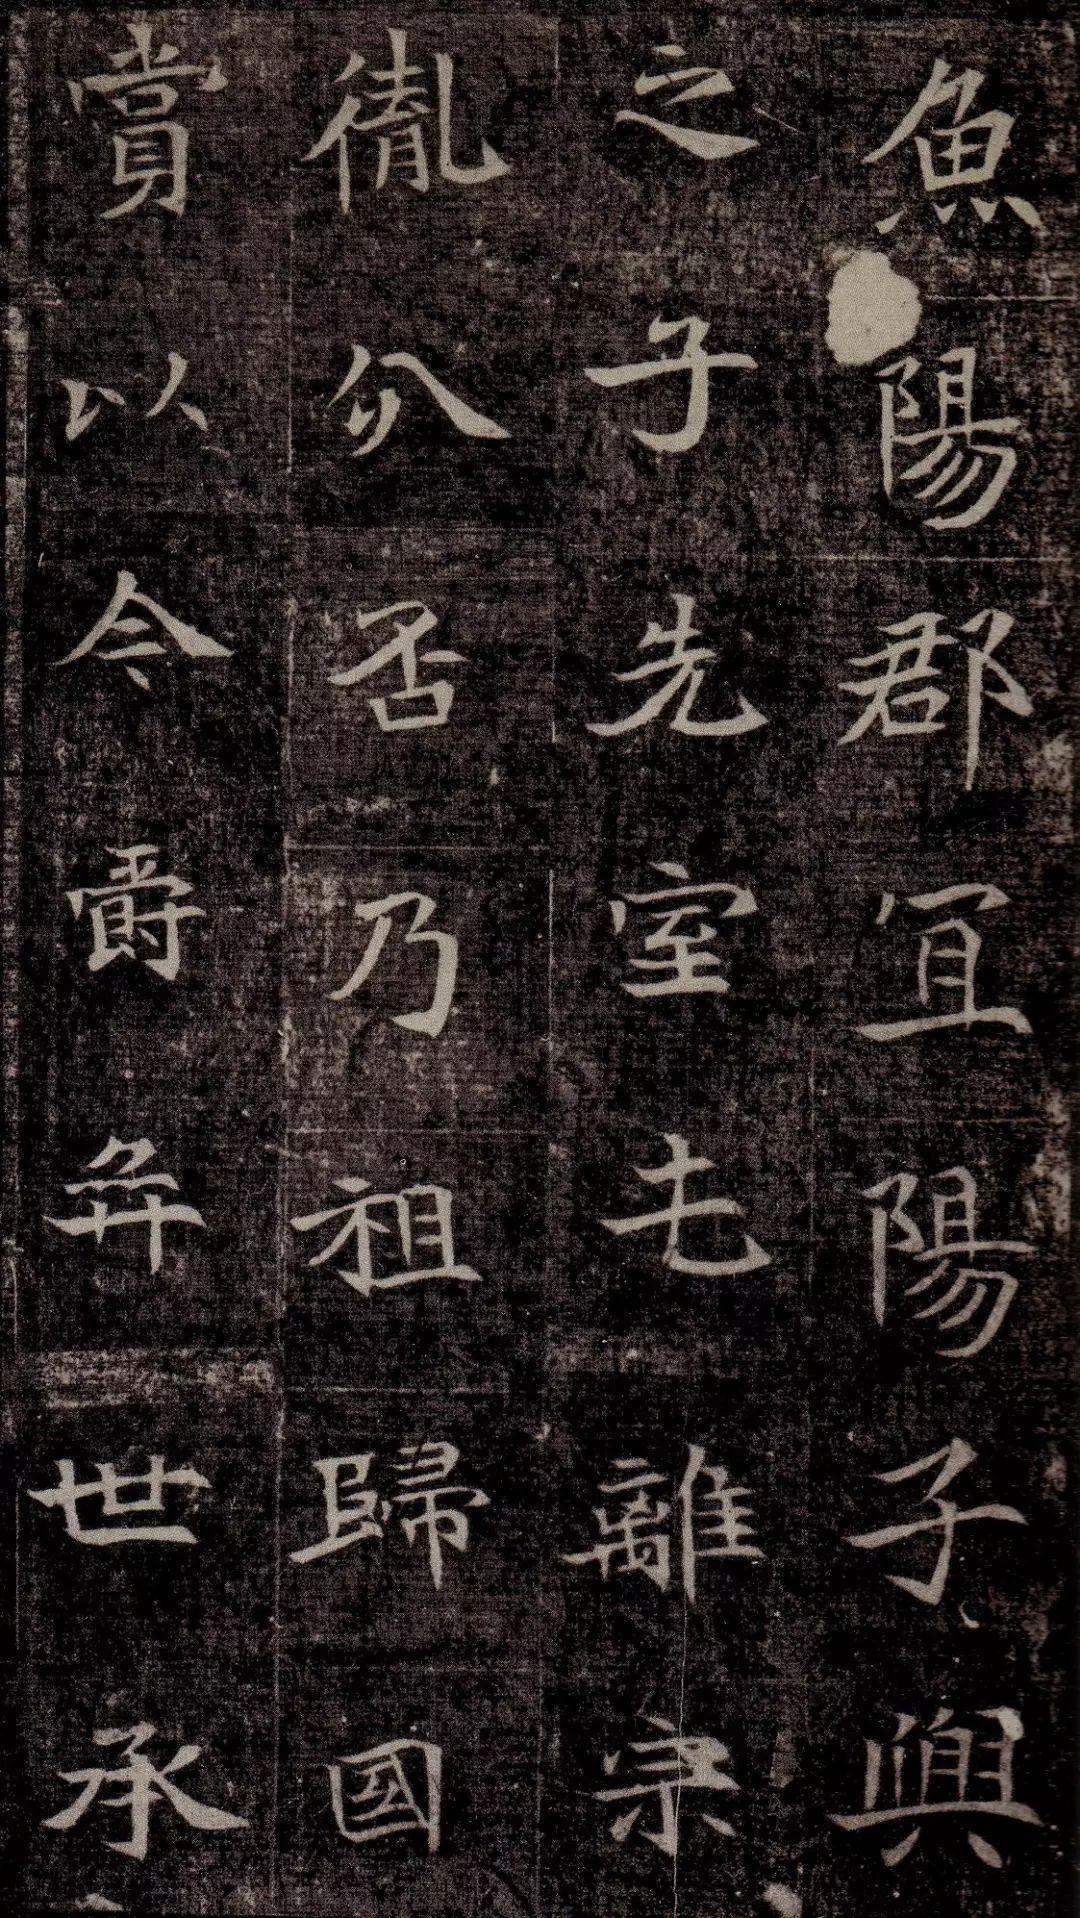 魚陽郡宜陽子興
之子先室屯離宗
胤分否乃祖歸國
賞以今爵弈世承